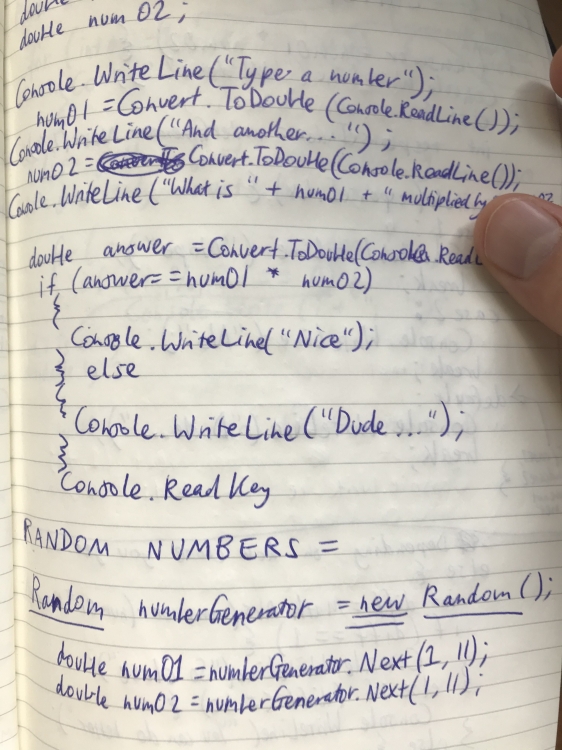 double
double num02;
Console.WriteLine("Type a number");
num01 = Convert.ToDouble (Console.ReadLine());
Console.WriteLine("And another...");
num02 = Convert.ToDouble(Console.ReadLine());
Console.WriteLine("What is " + num01 + " multiplied by 02
double answer = Convert.ToDouble(Console.ReadL
if (answer == num01 * num02)
{
Console.WriteLine("Nice");
}
else
{
Console.WriteLine("Dude ...");
}
Console.ReadKey
RANDOM NUMBERS =
Random numberGenerator = new Random();
double num01 = numberGenerator.Next(1, 11);
double num02 = numberGenerator.Next(1, 11);